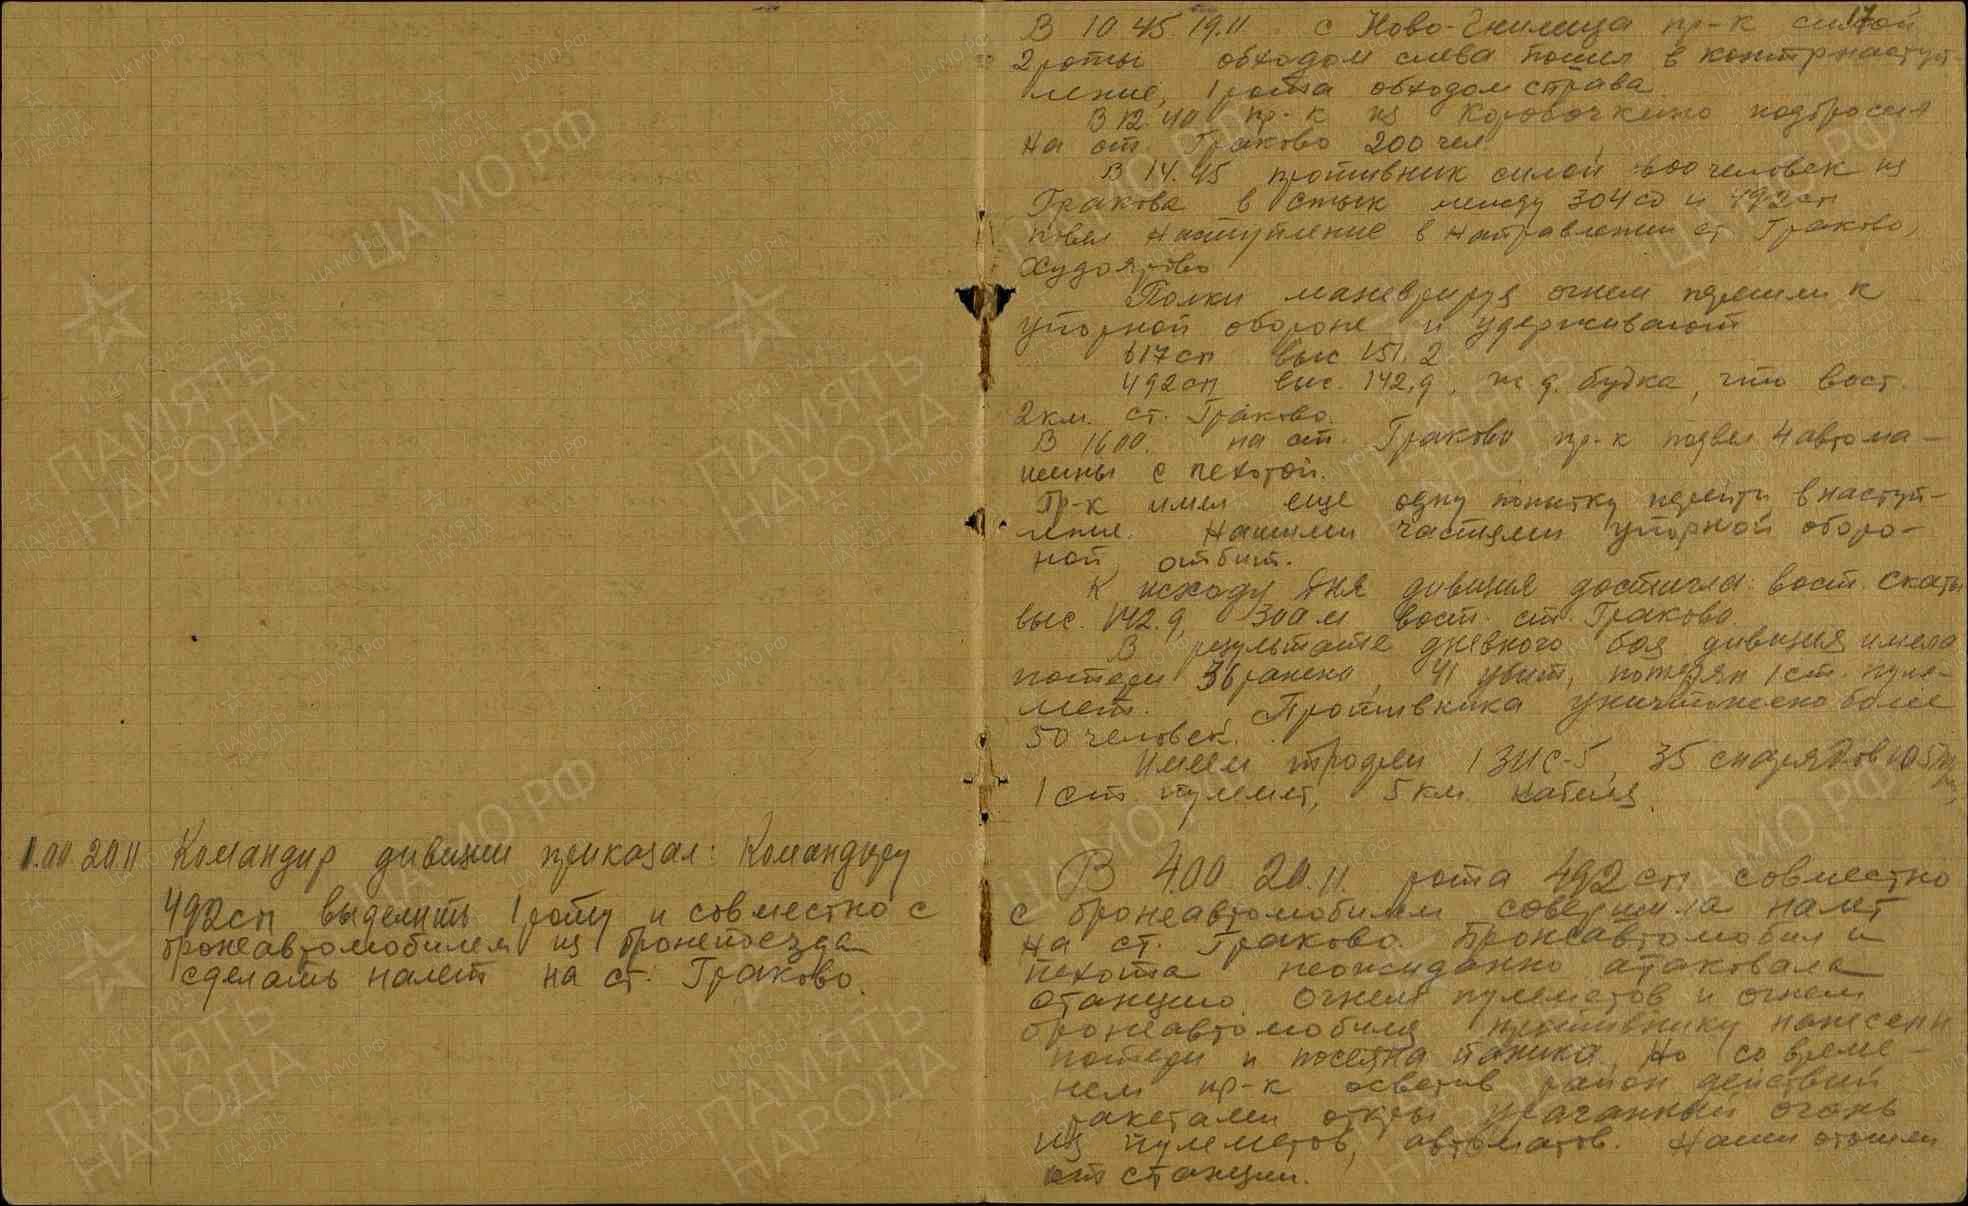 1.00 20.11 Командир дивизии приказал: Командиру
492сп выделить 1 роту и совместно с
бронеавтомобилем из бронепоезда
сделать налет на ст. Граково.
17
В 10.45 19.11 с Ново-Гнилица пр-к силой
2 роты обходом слева пошел в контрнаступ-
ление, 1 рота обходом справа
В 12.40 пр-к из Коробочкино подбросил
на ст. Граково 200 чел
В 14.45 противник силой человек из
Граково в стык между 304 сд и 492сп
повел наступление в направлении ст Граково,
Худоярово
Полки маневрируя огнем перешли к
упорной обороне и удерживают
617сп выс 151.2
492сп выс. 142,9, ж.д. будка, что вост.
2км. ст. Граково.
В 16.00. на ст. Граково пр-к подвел 4 автома-
шины с пехотой.
Пр-к имел еще одну попытку перейти в наступ-
ление. Нашими частями упорной оборо-
ной, отбит.
К исходу дня дивизия достигла: вост. скаты
выс. 142.9, 300 м вост. ст. Граково
В результате дневного боя дивизия имела
потери 36 ранено, 41 убит, потерян 1 ст. пуле-
мет. Противника уничтожено более
50 человек.
Имеем трофеи 1 ЗИС-5, 35 снарядов 105 мм,
1 ст пулемет, 5 км кабеля.
В 4.00 20.11. рота 492сп совместно
с бронеавтомобилем совершила налет
на ст. Граково. Бронеавтомобиль и
пехота неожиданно атаковала
станцию. Огнем пулеметов и огнем
бронеавтомобиля противнику нанесены
потери и посеяна паника, но со време-
нем пр-к осветив район действий
ракетами откры ураганный огонь
из пулеметов, автоматов. Наши отошли
от станции.